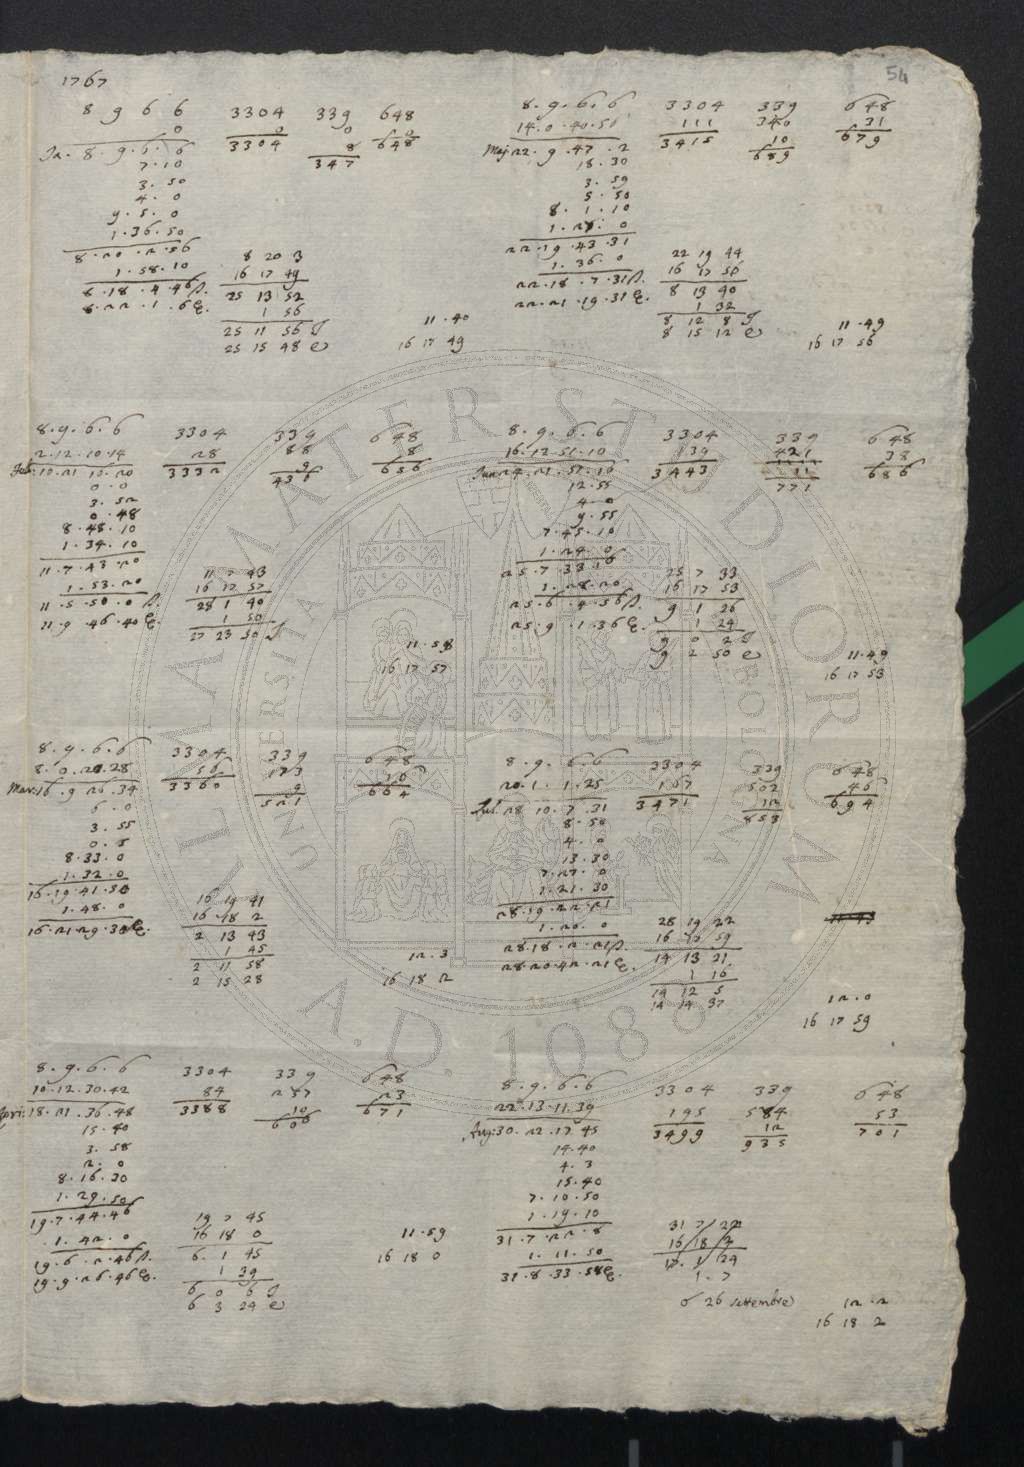 1767
54
8 9 6 6 3304 339 648
0 0 0 0
Ja. 8. 9. 6. 6 3304 8 648
7. 10 347
3. 50
4. 0
9. 5. 0
1. 36. 50
8. 20. 2. 56 8 20 3
1. 58. 10 16 17 49
8. 18. 4. 46 25 13 52
8. 22. 1. 6 1 56
25 11 56
25 15 48
11. 40
16 17 49
8. 9. 6. 6 3304 339 648
14. 0. 40. 56 111 340 31
Maj. 22. 9. 47. 2 3415 10 679
18. 30 689
3. 59
5. 50
8. 1. 10
0
22. 19. 43. 31 22 19 44
1. 36. 0 16 17 56
22. 18. 7. 31 8 13 40
22. 21. 19. 31 1 32
8 12 8
8 15 12
11. 49
16 17 56
8. 9. 6. 6 3304 339 648
2. 12. 10. 14 28 88 8
Feb. 10. 21 3332 9 656
0. 0 436
3. 52
0. 48
8. 48. 10
1. 34. 10
11. 7. 43. 20 11 7 43
1. 53. 20 16 17 57
11. 5. 50. 0 28 1 40
11. 9. 46. 40 1 50
27 23 50
11. 58
16 17 57
8. 9. 6. 6 3304 339 648
16. 12. 51. 10 139 421 38
Jun. 24. 21. 57. 16 3443 11 686
12. 55 771
4. 0
9. 55
7. 45. 10
1. 24. 0
25. 7. 33. 16 25 7 33
1. 28. 20 16 17 53
25. 6. 4. 56 9 1 26
25. 9. 1. 36 1 24
9 0 2
9 2 50
11. 49
16 17 53
8. 9. 6. 6 3304 339 648
8. 0. 20. 28 56 173 16
Mar. 16. 9. 26. 34 3360 9 664
6. 0 521
3. 55
0. 5
8. 33. 0
1. 32. 0
16. 19. 41. 30 16 19 41
1. 48. 0 16 18 2
16. 21. 29. 30 2 13 43
1 45
2 11 58
2 15 28
12. 3
16 18 2
8. 9. 6. 6 3304 339 648
20. 1. 1. 25 167 502 46
Jul. 28. 10. 7. 31 3471 12 694
8. 50 853
4. 0
13. 30
7. 27. 0
1. 21. 30
28. 19. 22. 21 28 19 22
1. 20. 0 16 17 59
28. 18. 2. 21 14 13 21
28. 20. 42. 21 1 16
14 12 5
14 14 37
12. 0
16 17 59
8. 9. 6. 6 3304 339 648
10. 12. 30. 42 84 257 23
Apri. 18. 21. 36. 48 3388 10 671
15. 40 606
3. 58
2. 0
8. 16. 30
1. 29. 50
19. 7. 44. 46 19 7 45
1. 42. 0 16 18 0
19. 6. 2. 46 6. 1 45
19. 9. 26. 46 1 39
6 0 6
6 3 24
11. 59
16 18 0
8. 9. 6. 6 3304 339 648
22. 13. 11. 39 195 584 53
Aug. 30. 22. 17. 45 3499 12 701
14. 40 935
4. 3
15. 40
7. 10. 50
1. 19. 10
31. 7. 22. 8 31 7 22
1. 11. 50 16 18 2
31. 8. 33. 58 17. 1 24
1. 7
6 26 settembre
12. 2
16 18 2
ALMA MATER STUDIORUM
UNIVERSITÀ DI BOLOGNA
A.D. 1088